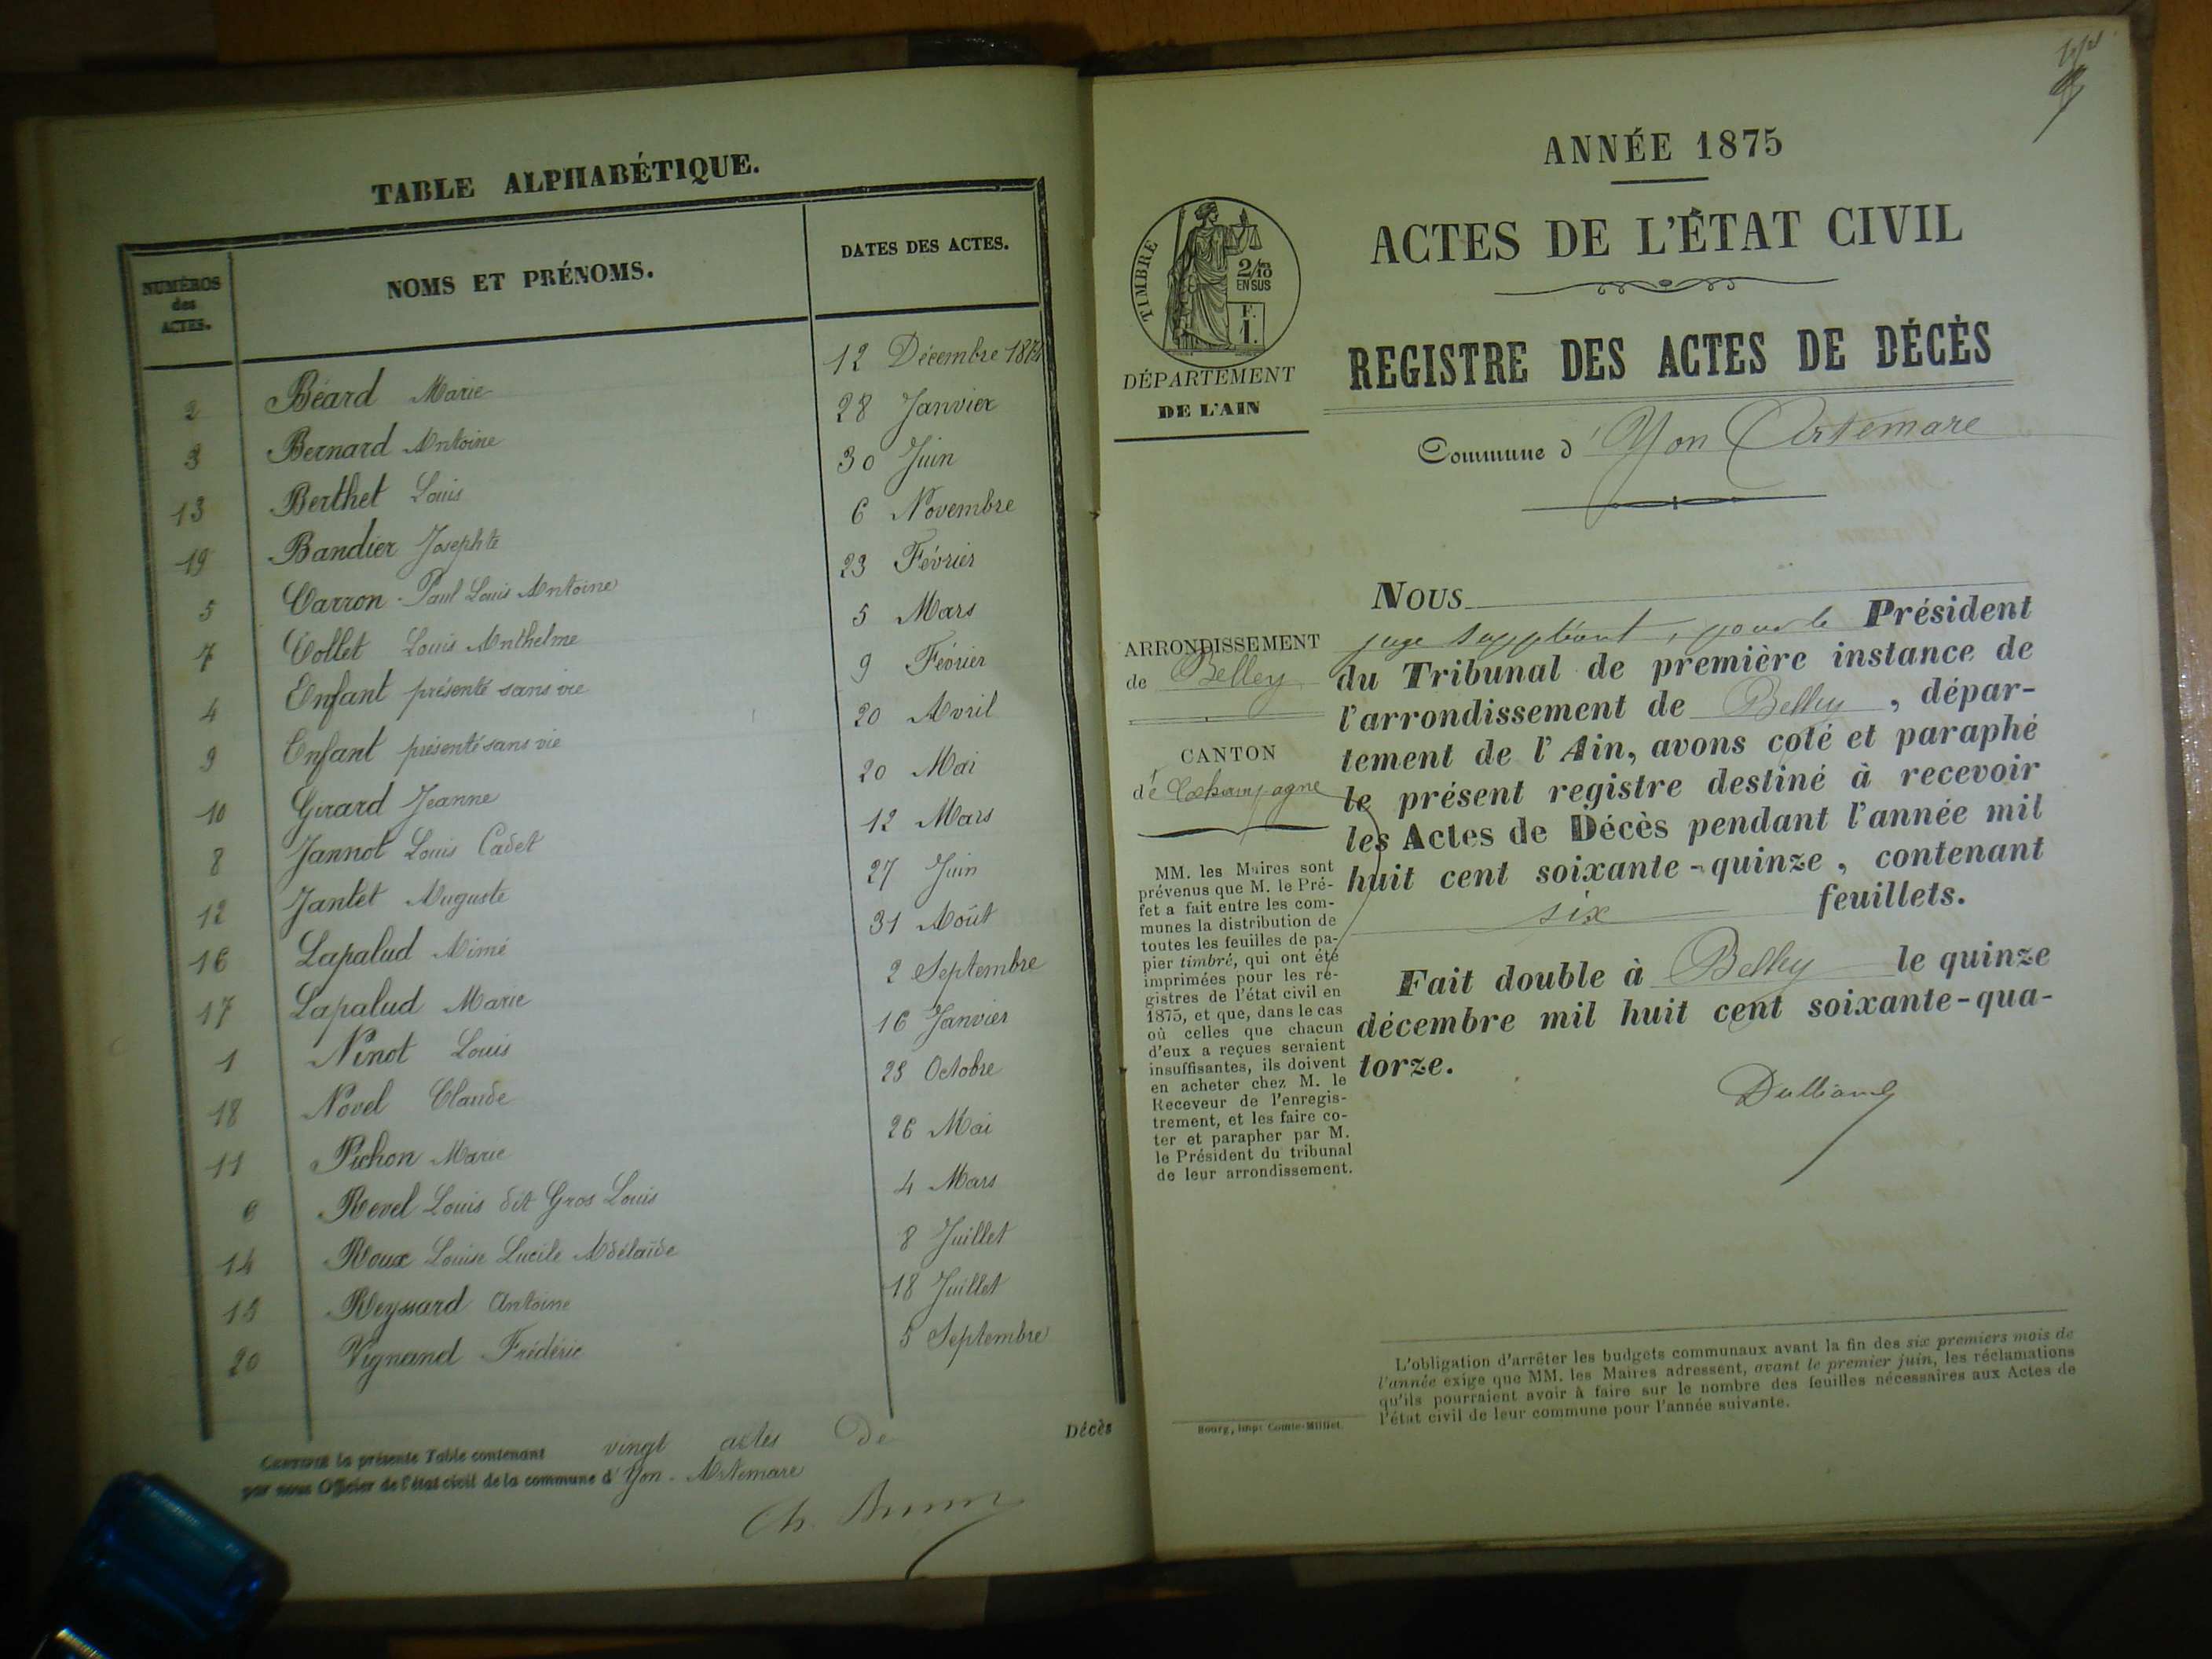 TABLE ALPHABÉTIQUE.
NUMÉROS des ACTES.
NOMS ET PRÉNOMS.
DATES DES ACTES.
2 Béard Marie 12 Décembre 1874
3 Bernard Antoine 28 Janvier
13 Berthet Louis 30 Juin
19 Bandier Josephte 6 Novembre
5 Carron Paul Louis Antoine 23 Février
7 Collet Louis Anthelme 5 Mars
4 Enfant présenté sans vie 9 Février
9 Enfant présenté sans vie 20 Avril
10 Girard Jeanne 20 Mai
8 Jannot Louis Cadet 12 Mars
12 Jantet Auguste 27 Juin
16 Lapalud Aimé 31 Août
17 Lapalud Marie 2 Septembre
1 Ninot Louis 16 Janvier
18 Novel Claude 23 Octobre
11 Pichon Marie 26 Mai
6 Revel Louis dit Gros Louis 4 Mars
14 Roux Louise Lucile Adélaïde 8 Juillet
15 Reynard Antoine 18 Juillet
20 Vignand Frédéric 5 Septembre
CERTIFIÉ la présente Table contenant vingt actes De Décès
par nous Officier de l'état civil de la commune d'Yon-Artemare
ANNÉE 1875
ACTES DE L'ÉTAT CIVIL
REGISTRE DES ACTES DE DÉCÈS
Commune d'Yon Artemare
TIMBRE
2/10 EN SUS
F. 1.
DÉPARTEMENT
DE L'AIN
ARRONDISSEMENT
de Belley
CANTON
de Champagne
MM. les Maires sont
prévenus que M. le Pré-
fet a fait entre les com-
munes la distribution de
toutes les feuilles de pa-
pier timbré, qui ont été
imprimées pour les re-
gistres de l'état civil en
1875, et que, dans le cas
où celles que chacun
d'eux a reçues seraient
insuffisantes, ils doivent
en acheter chez M. le
Receveur de l'enregis-
trement, et les faire co-
ter et parapher par M.
le Président du tribunal
de leur arrondissement.
NOUS
juge suppléant, pour le Président
du Tribunal de première instance de
l'arrondissement de Belley, dépar-
tement de l'Ain, avons coté et paraphé
le présent registre destiné à recevoir
les Actes de Décès pendant l'année mil
huit cent soixante-quinze, contenant
six feuillets.
Fait double à Belley le quinze
décembre mil huit cent soixante-qua-
torze.
L'obligation d'arrêter les budgets communaux avant la fin des six premiers mois de
l'année exige que MM. les Maires adressent, avant le premier juin, les réclamations
qu'ils pourraient avoir à faire sur le nombre des feuilles nécessaires aux Actes de
l'état civil de leur commune pour l'année suivante.
Bourg, imp: Comte-Milliet.